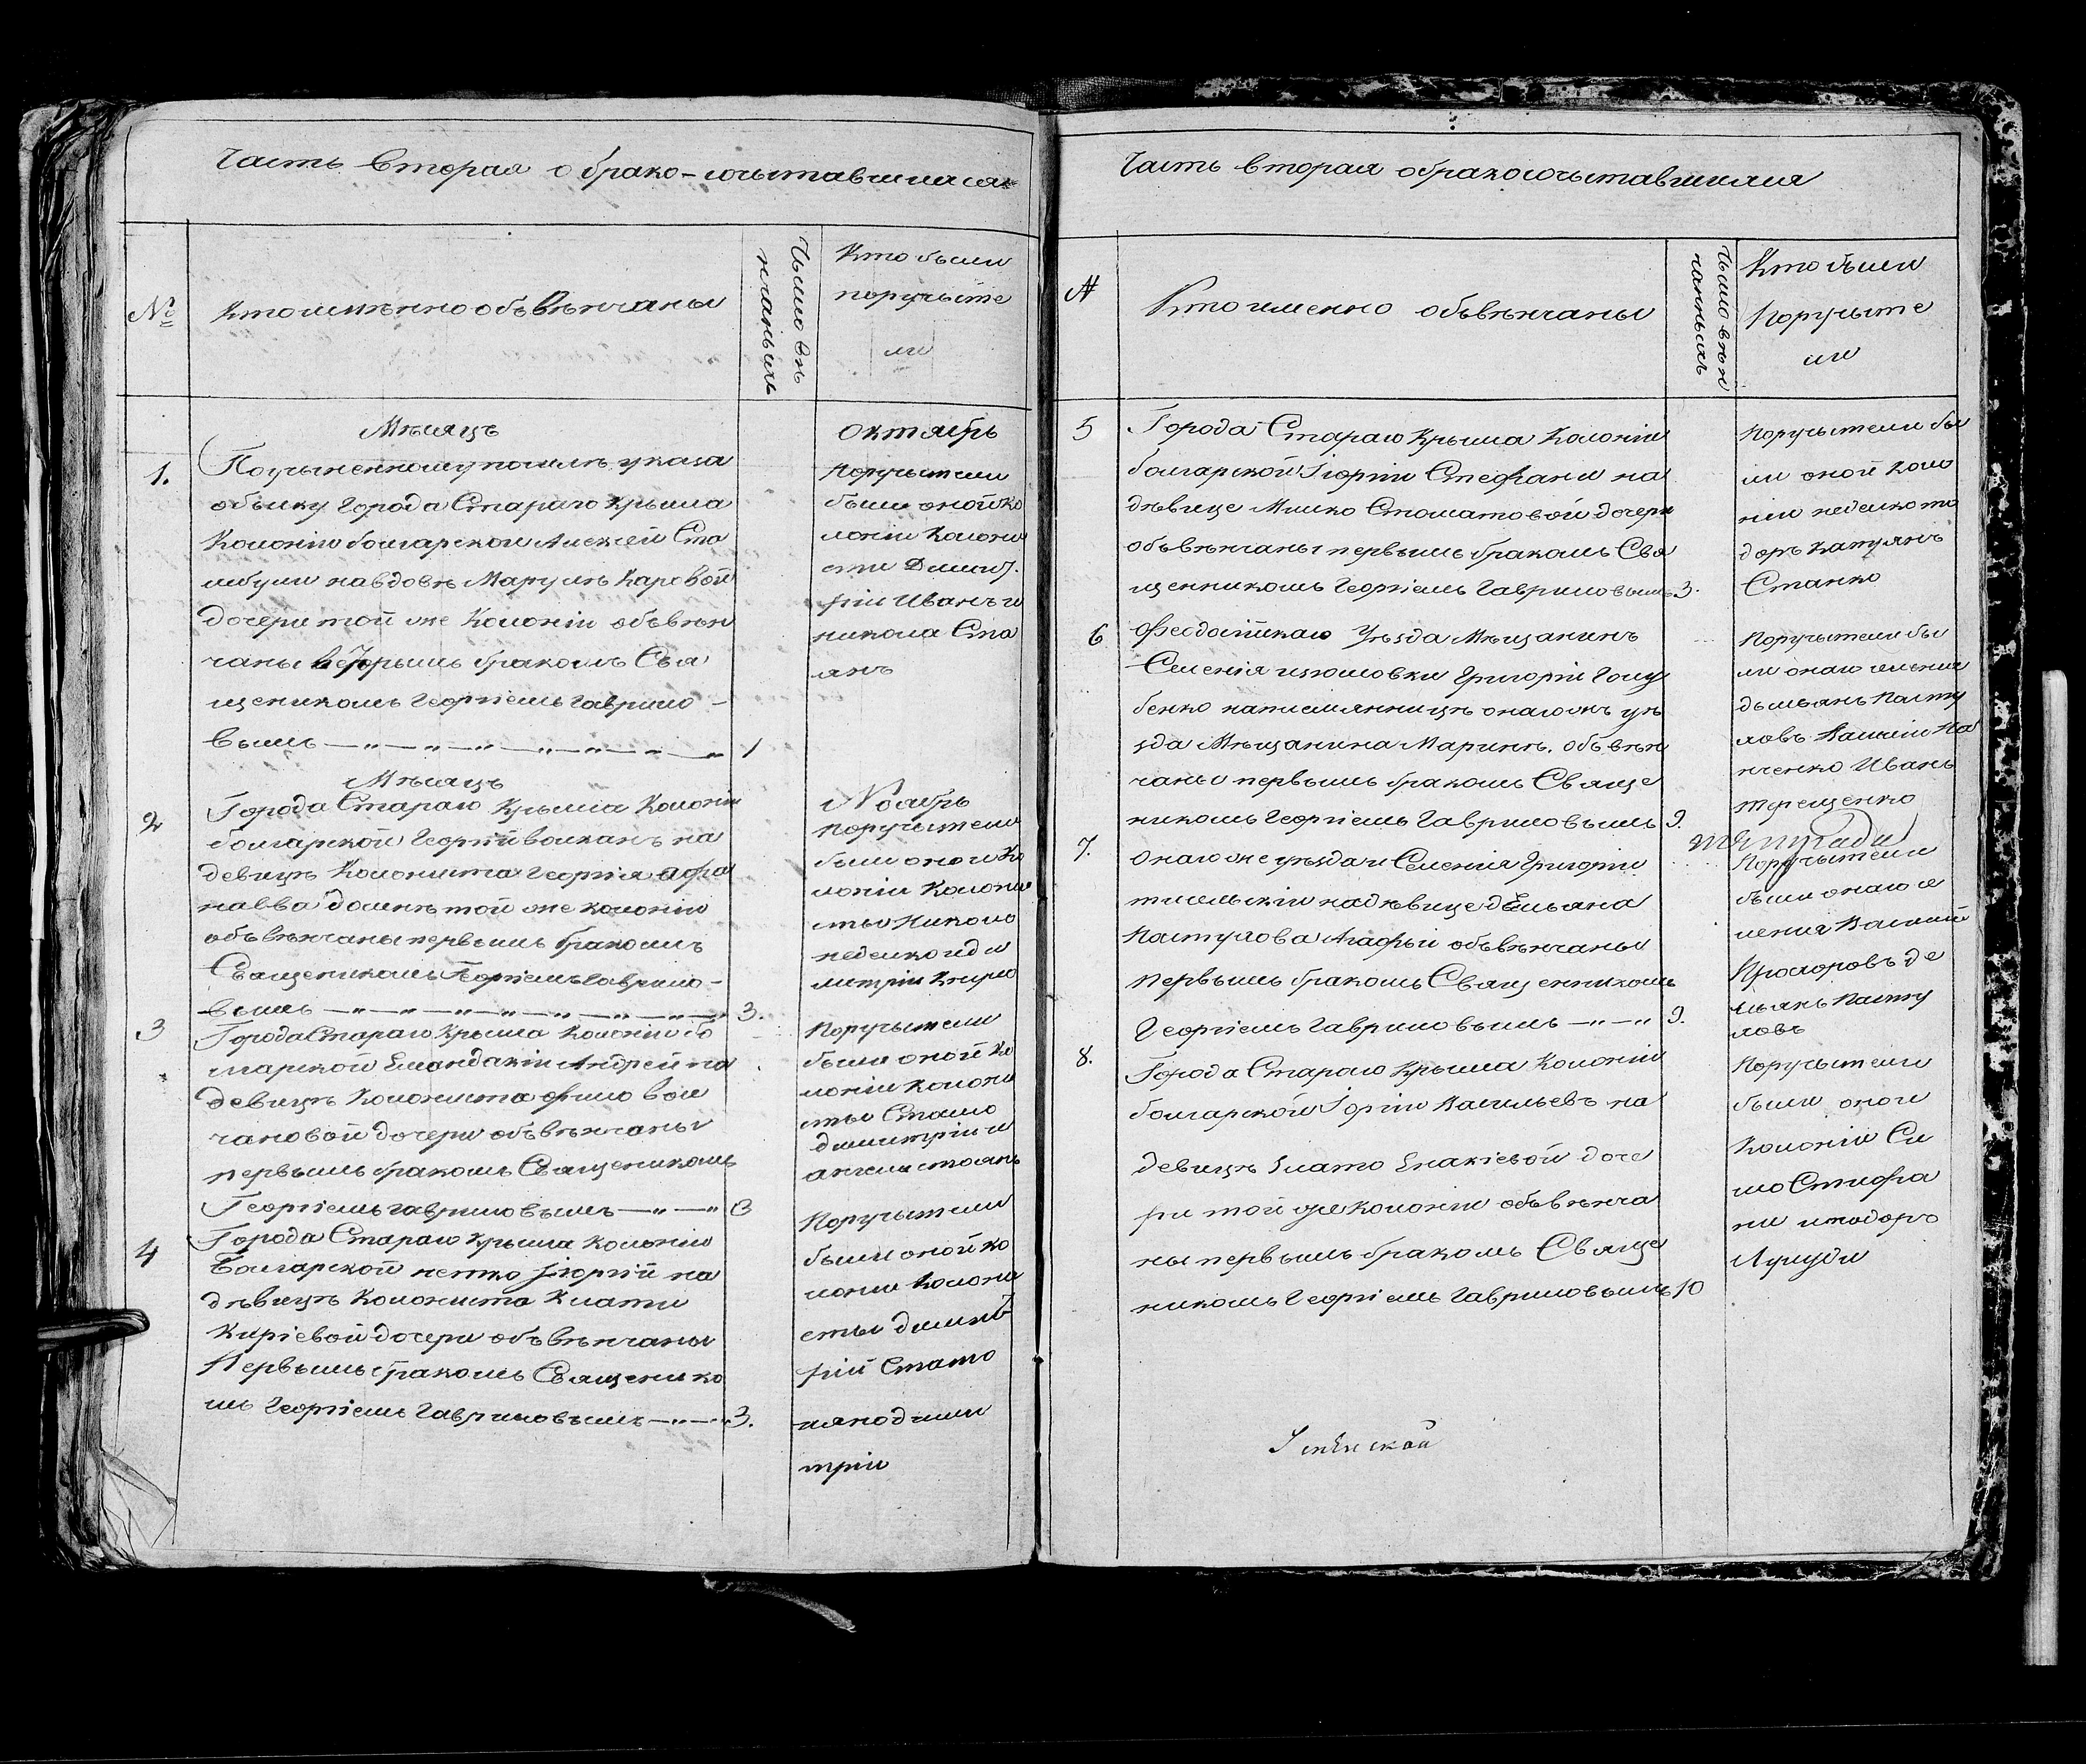 Часть вторая о брако-сочытавшихся
№
Кто имѣнно обвѣнчаны
Чысло вѣ
нчаныхъ
Кто были
поручыте
ли
Мѣсяцъ
Октябрь
1.
По учыненному послѣ указа
обыску города Стараго Крыма
Колоніи болгарской Алексей Ста
на вдовѣ Каровой
дочери той же Колоніи обвѣн
чаны вторымъ бракомъ Свя
щеникомъ Георгіемъ Гаврило-
вымъ — „ — „ — „ — „ — „ — „ — „
1
Поручытели
были оной ко
лоніи колони
сты Димит
рій Иванъ и
никола Сто
янъ
Мѣсяцъ
Ноябрь
2
Города Стараго Крыма Колоніи
болгарской Георгій волканъ на
девицѣ Колониста Георгія
той же колоніи
обвѣнчаны первымъ бракомъ
Священикомъ Георгіемъ Гаврило-
вымъ — „ — „ — „ — „ — „ — „ — „
3.
Поручители
были оной Ко
лоніи колони
сты Николо
неделко и ди
митрій
3
Города Стараго Крыма Колоніи бо
лгарской Андрей на
девицѣ Колониста
чановой дочери обвѣнчаны
первымъ бракомъ Священикомъ
Георгіемъ Гавриловымъ — „ — „
3
Поручытели
были оной Ко
лоніи колони
сты Стамо
димитрій и
ангели стоянъ
4
Города Стараго Крыма Колоніи
Болгарской петко Гіоргій на
дѣвицѣ Колониста Злати
Киріевой дочери обвѣнчаны
Первымъ бракомъ Священико
мъ Георгіемъ Гавриловымъ — „ — „
3.
Поручытели
были оной ко
лоніи колони
сты димит
рій Стамо
дими
трій
Часть вторая о бракосочытавшихся
№
Кто именно обвѣнчаны
Чысло вѣн
чанныхъ
Кто были
Поручыте
ли
5
Города Стараго Крыма Колоніи
болгарской Гіоргій Стефани на
дѣвице Милко Стоматовой дочери
обвѣнчаны первымъ бракомъ Свя
щенникомъ Георгіемъ Гавриловымъ
3.
Поручытели бы
ли оной коло
ніи неделко то
доръ
Станко
6
Феодосійскаго Уѣзда Мѣщанинъ
Селенія изюмовки Григорій Голу
бенко на племянницѣ онагожъ уѣ
зда Мѣщанина Маринѣ. обвѣн
чаны первымъ бракомъ Свяще
никомъ Георгіемъ Гавриловымъ
9.
Поручытели бы
ли онаго селенія
демьянъ Пасту
ховъ Василій Па
нченко Иванъ
терещенко
7.
Онаго же уѣзда и Селенія Григорій
на дѣвице демьяна
Пастухова Агафьи обвѣнчаны
первымъ бракомъ Священникомъ
Георгіемъ Гавриловымъ — „ — „
9.
Поручытели
были онаго се
ленія Василій
Прохоровъ де
мьянъ Пасту
ховъ
8.
Города Стараго Крыма Колоніи
болгарской Гіоргій Васильевъ на
девицѣ Злато Енакіевой доче
ри той же колоніи обвѣнча
ны первымъ бракомъ Свяще
никомъ Георгіемъ Гавриловымъ
10
Поручытели
были оной
Колоніи Си
мо Стифа
ни и тодоръ